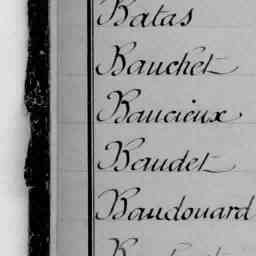 Batas
Bauchet
Baucieux
Baudet
Baudouard